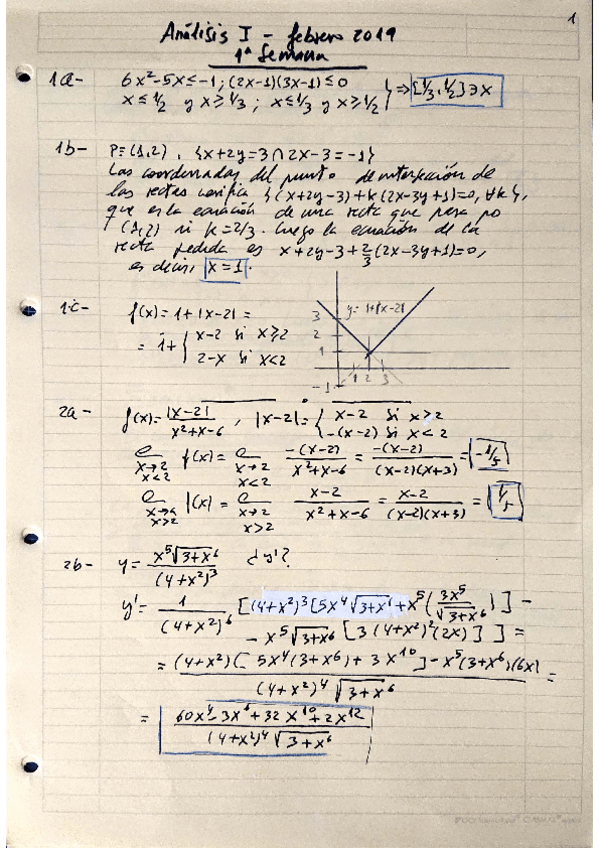 1
Análisis I - febrero 2019
1ª Semana
1a- 6x²-5x≤-1; (2x-1)(3x-1)≤0
x≤1/2 y x≥1/3; x≤1/3 y x≥1/2 } ⇒ [1/3, 1/2] ∋ x
1b- P≡(1,2), {x+2y=3 ∩ 2x-3=-1}
Las coordenadas del punto de intersección de
las rectas verifica {(x+2y-3)+k(2x-3y+1)=0, ∀k},
que es la ecuación de una recta que pasa po
(1,2) si k=2/3. Luego la ecuación de la
recta pedida es x+2y-3+2/3(2x-3y+1)=0,
es decir, x=1.
1c- f(x)=1+|x-2|=
= 1+{ x-2 si x≥2
2-x si x<2
y=1+|x-2|
3
2
1
-1
1 2 3
2a- f(x)=|x-2|/(x²+x-6), |x-2|={ x-2 si x≥2
-(x-2) si x<2
x→2 x<2 f(x)= x→2 x<2 -(x-2)/(x²+x-6) = -(x-2)/((x-2)(x+3)) = -1/5
x>2 f(x)= x→2 x>2 (x-2)/(x²+x-6) = (x-2)/((x-2)(x+3)) = 1/5
2b- y= x⁵√(3+x⁶)/(4+x²)³ ¿y'?
y'= 1/(4+x²)⁶ [(4+x²)³[5x⁴√(3+x⁶)+x⁵(3x⁵/√(3+x⁶))]-
- x⁵√(3+x⁶) [3(4+x²)²(2x)]] =
= ((4+x²)[5x⁴(3+x⁶)+3x¹⁰]-x⁵(3+x⁶)(6x))/((4+x²)⁴√(3+x⁶)) =
= (60x⁴-3x⁶+32x¹⁰+2x¹²)/((4+x²)⁴√(3+x⁶))